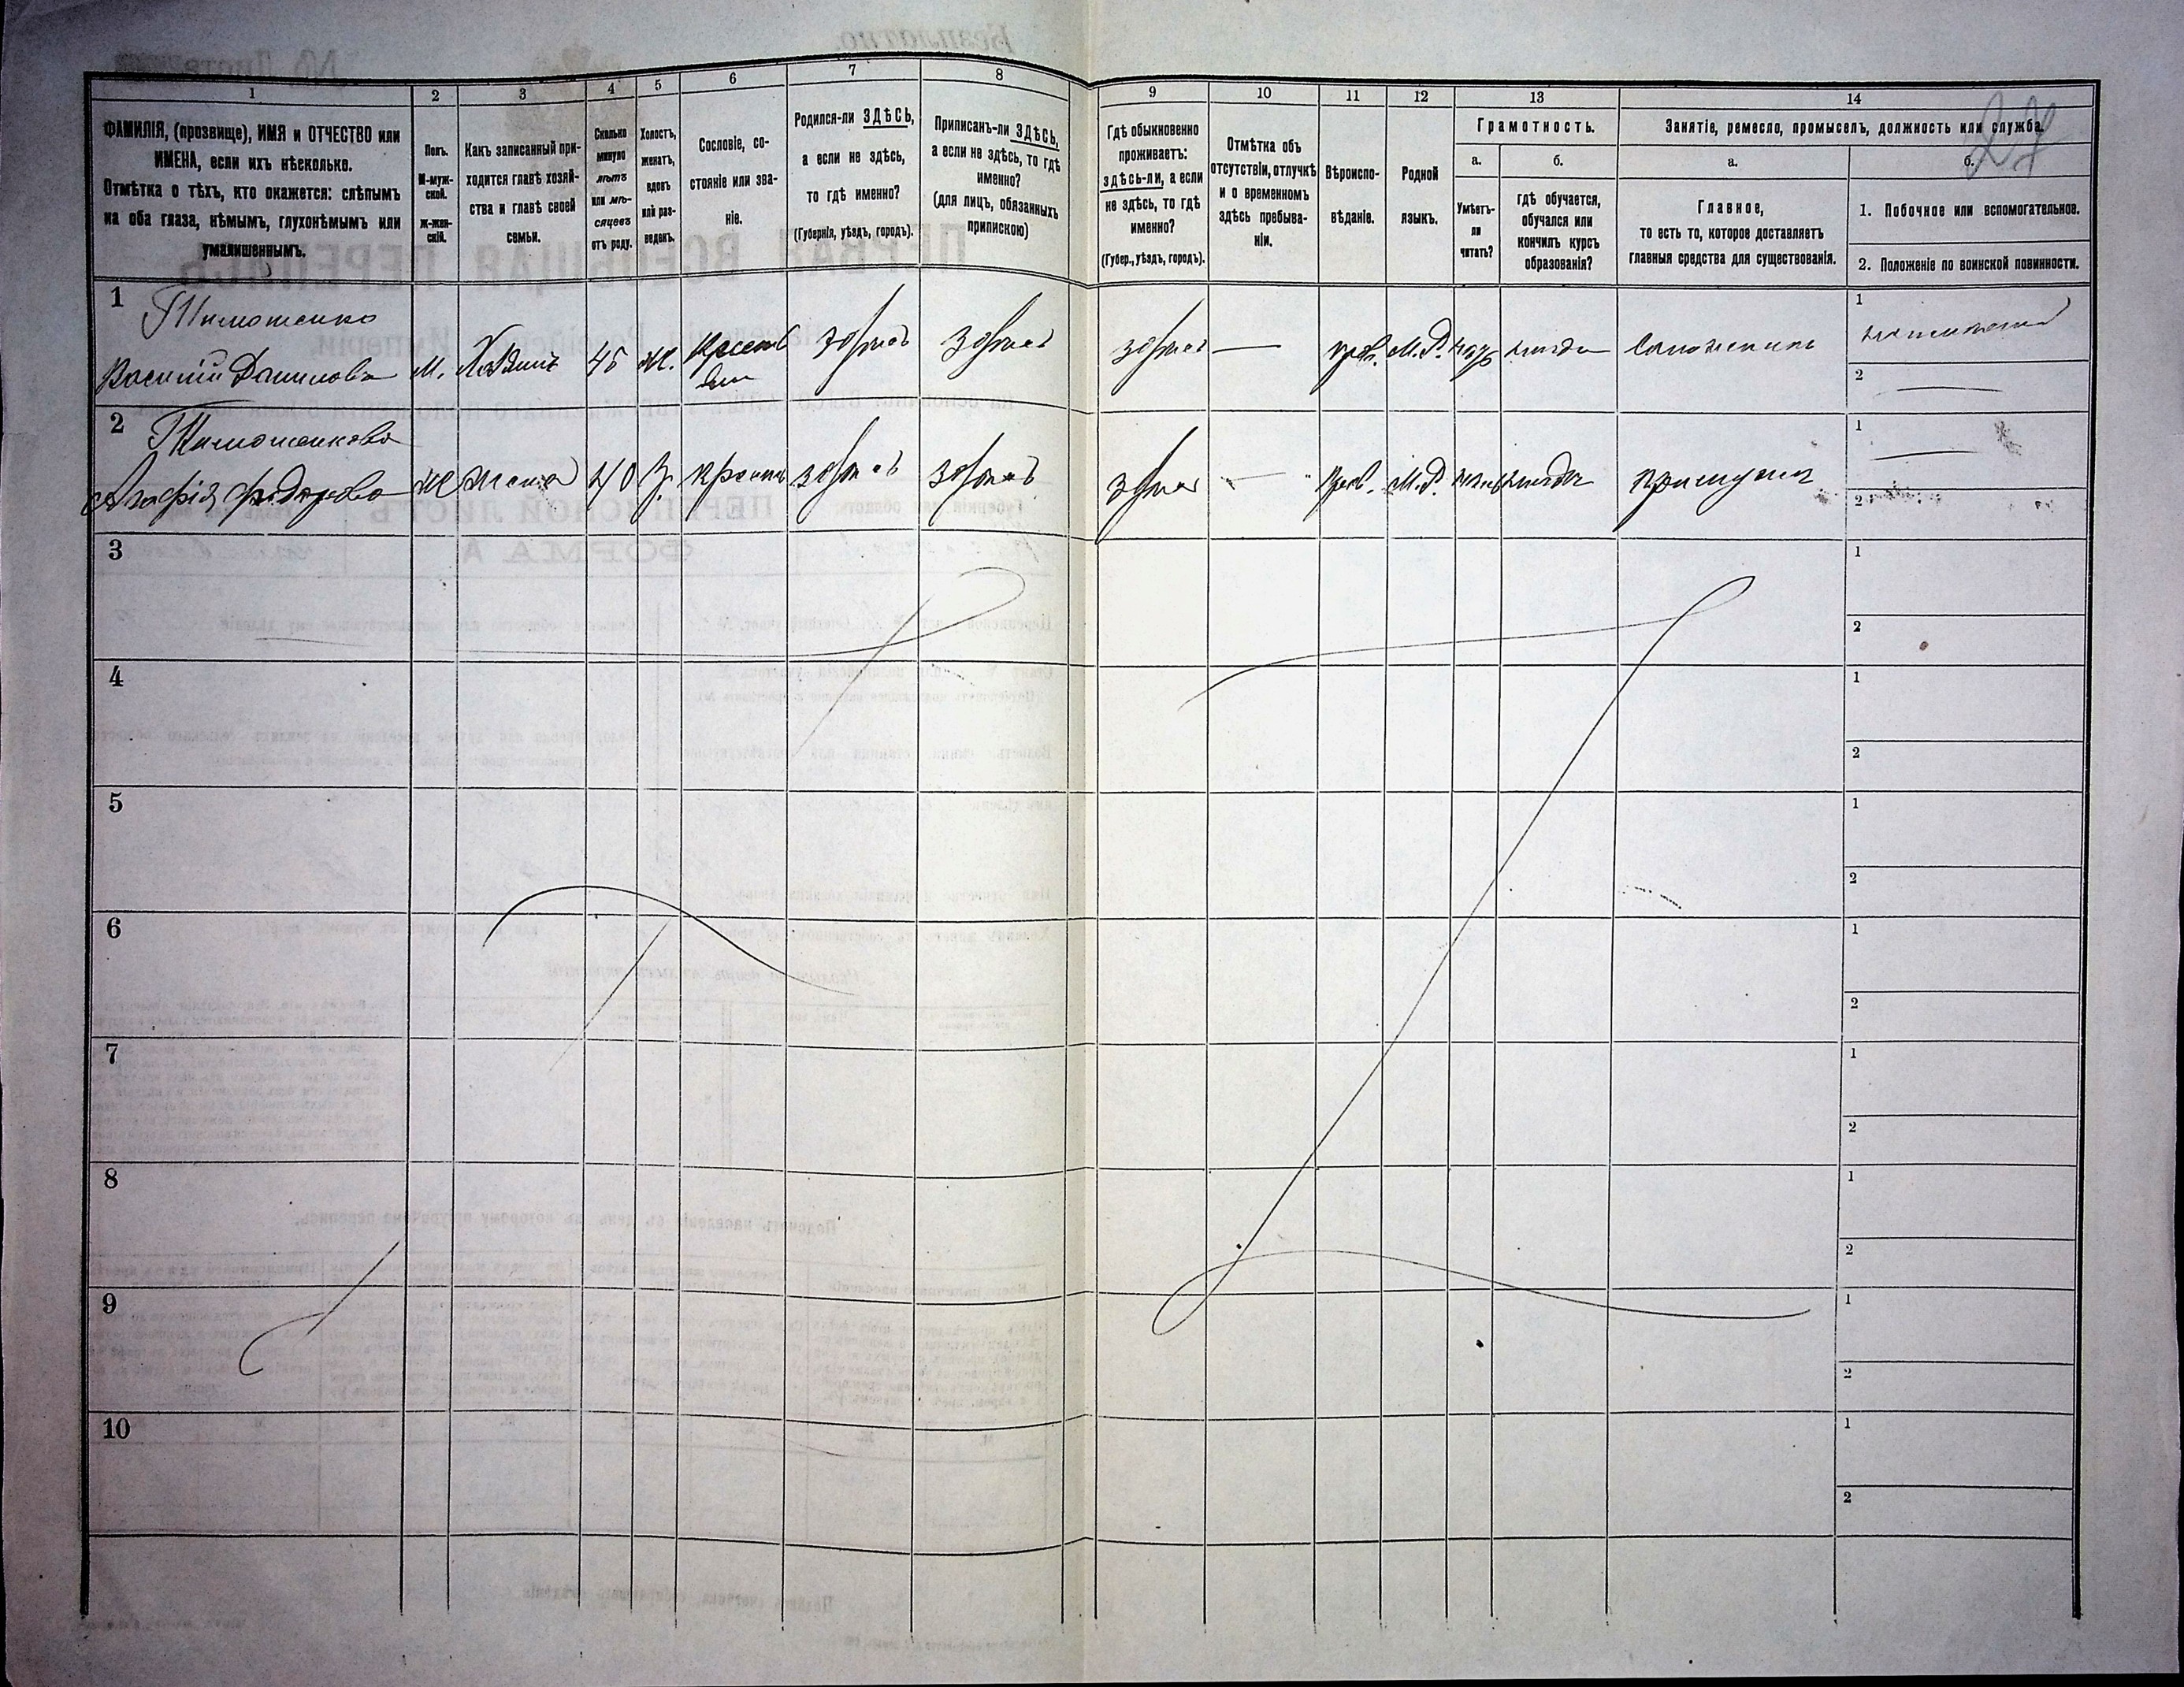 27
1
2
3
4
5
6
7
8
9
10
11
12
13
14
ФАМИЛІЯ, (прозвище), ИМЯ и ОТЧЕСТВО или
ИМЕНА, если ихъ нѣсколько.
Отмѣтка о тѣхъ, кто окажется: слѣпымъ
на оба глаза, нѣмымъ, глухонѣмымъ или
умалишеннымъ.
Полъ.
М-муж-
ской.
Ж-жен-
скій.
Какъ записанный при-
ходится главѣ хозяй-
ства и главѣ своей
семьи.
Сколько
минуло
лѣтъ
или мѣ-
сяцевъ
отъ роду.
Холостъ,
женатъ,
вдовъ
или раз-
веденъ.
Сословіе, со-
стояніе или зва-
ніе.
Родился-ли ЗДѢСЬ,
а если не здѣсь,
то гдѣ именно?
(Губернія, уѣздъ, городъ).
Приписанъ-ли ЗДѢСЬ,
а если не здѣсь, то гдѣ
именно?
(для лицъ, обязанныхъ
припискою)
Гдѣ обыкновенно
проживаетъ:
здѣсь-ли, а если
не здѣсь, то гдѣ
именно?
(Губер., уѣздъ, городъ).
Отмѣтка объ
отсутствіи, отлучкѣ
и о временномъ
здѣсь пребыва-
ніи.
Вѣроиспо-
вѣданіе.
Родной
языкъ.
Грамотность.
а.
б.
Умѣетъ-
ли
читать?
гдѣ обучается,
обучался или
кончилъ курсъ
образованія?
Занятіе, ремесло, промыселъ, должность или служба.
а.
б.
Главное,
то есть то, которое доставляетъ
главныя средства для существованія.
1. Побочное или вспомогательное.
2. Положеніе по воинской повинности.
1
Тимошенко
Василій Данилова
М.
Хозяинъ
45
Ж.
здѣсь
здѣсь
здѣсь
—
прав.
М.Р.
1
2
2
Тимошенкова
Агафія Федорова
Ж
Жена
40
З.
здѣсь
здѣсь
здѣсь
—
Прав.
М.Р.
1
2
3
1
2
4
1
2
5
1
2
6
1
2
7
1
2
8
1
2
9
1
2
10
1
2